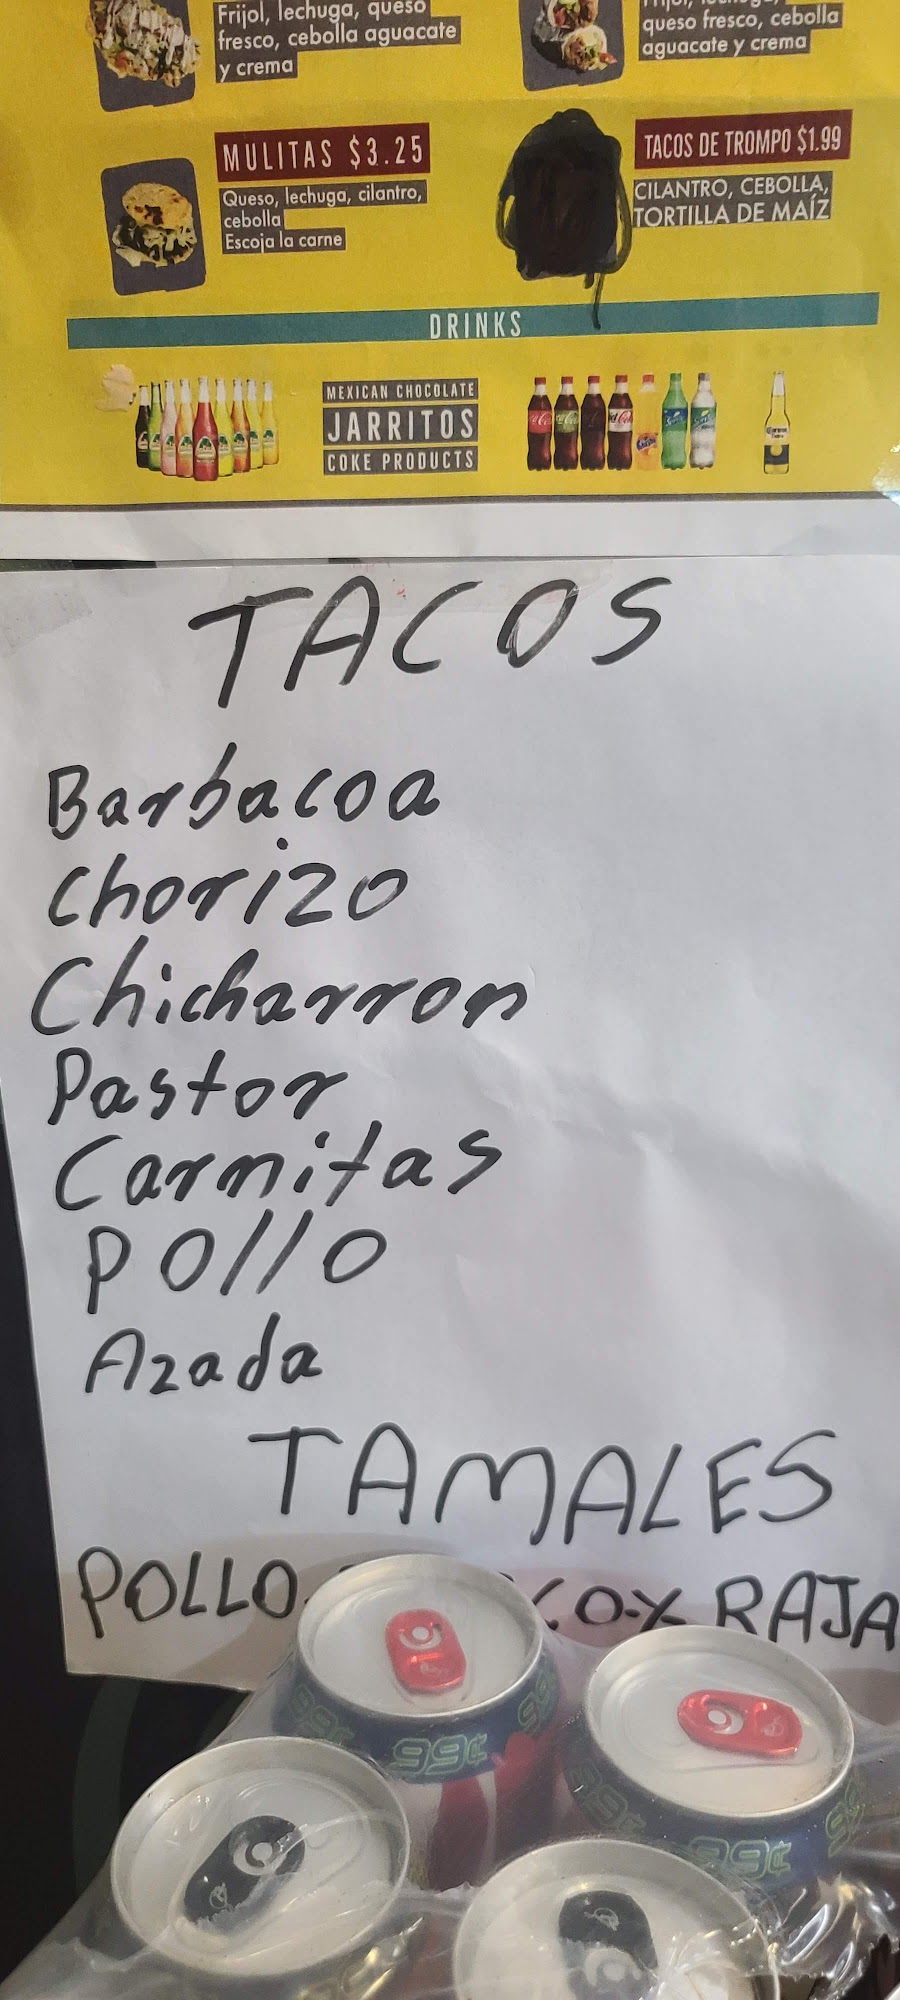 Frijol, lechuga, queso
fresco, cebolla aguacate
y crema
queso fresco, cebolla
aguacate y crema
MULITAS $3.25
Queso, lechuga, cilantro,
cebolla
Escoja la carne
TACOS DE TROMPO $1.99
CILANTRO, CEBOLLA,
TORTILLA DE MAÍZ
DRINKS
MEXICAN CHOCOLATE
JARRITOS
COKE PRODUCTS
TACOS
Barbacoa
Chorizo
Chicharron
Pastor
Carnitas
Pollo
Azada
TAMALES
POLLO RAJA
99¢
99¢
99¢